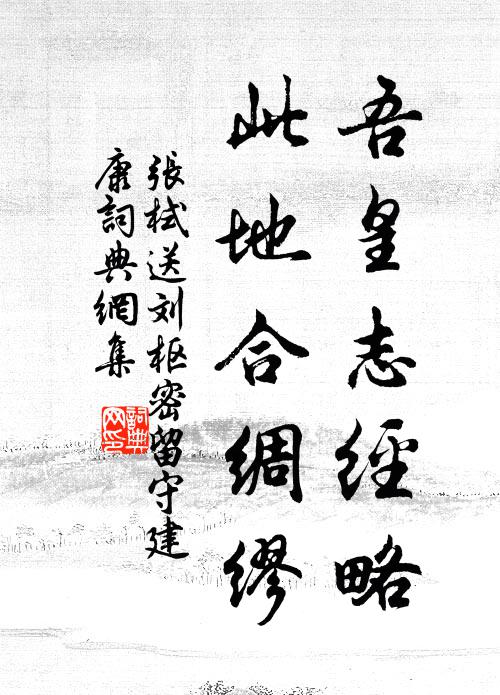 吾皇志經略
此地合綢繆
張栻送刘枢密留守建
康詞典網集
詞典网印